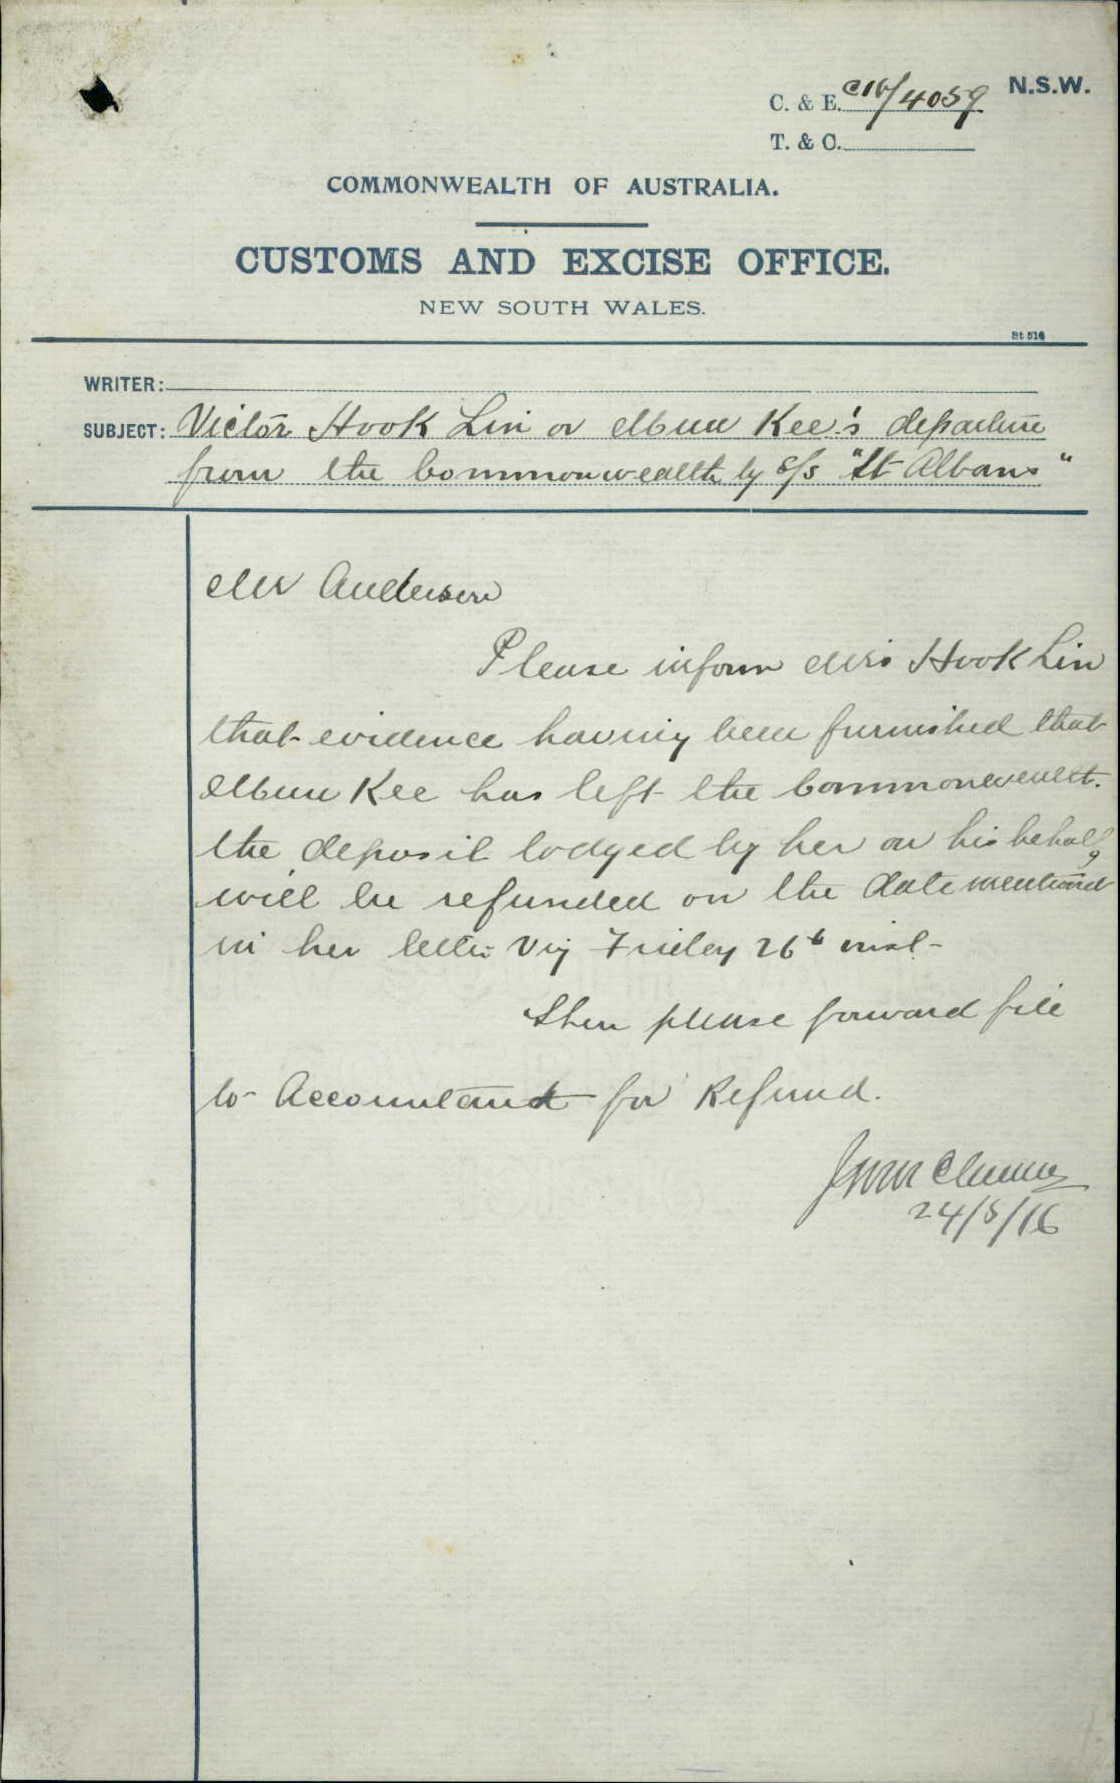 C. & E. C16/4059 N.S.W.
T. & C.
COMMONWEALTH OF AUSTRALIA.
CUSTOMS AND EXCISE OFFICE.
NEW SOUTH WALES.
St. 516
WRITER:
SUBJECT: Victor Hook Lin or Mun Kee's departure
from the Commonwealth by s/s "St Albans"
Mr Anderson
Please inform Mrs Hook Lin
that evidence having been furnished that
Mun Kee has left the Commonwealth.
the deposit lodged by her on his behalf
will be refunded on the date mentioned
in her letter viz Friday 26th inst-
Then please forward file
to Accountant for Refund.
24/5/16